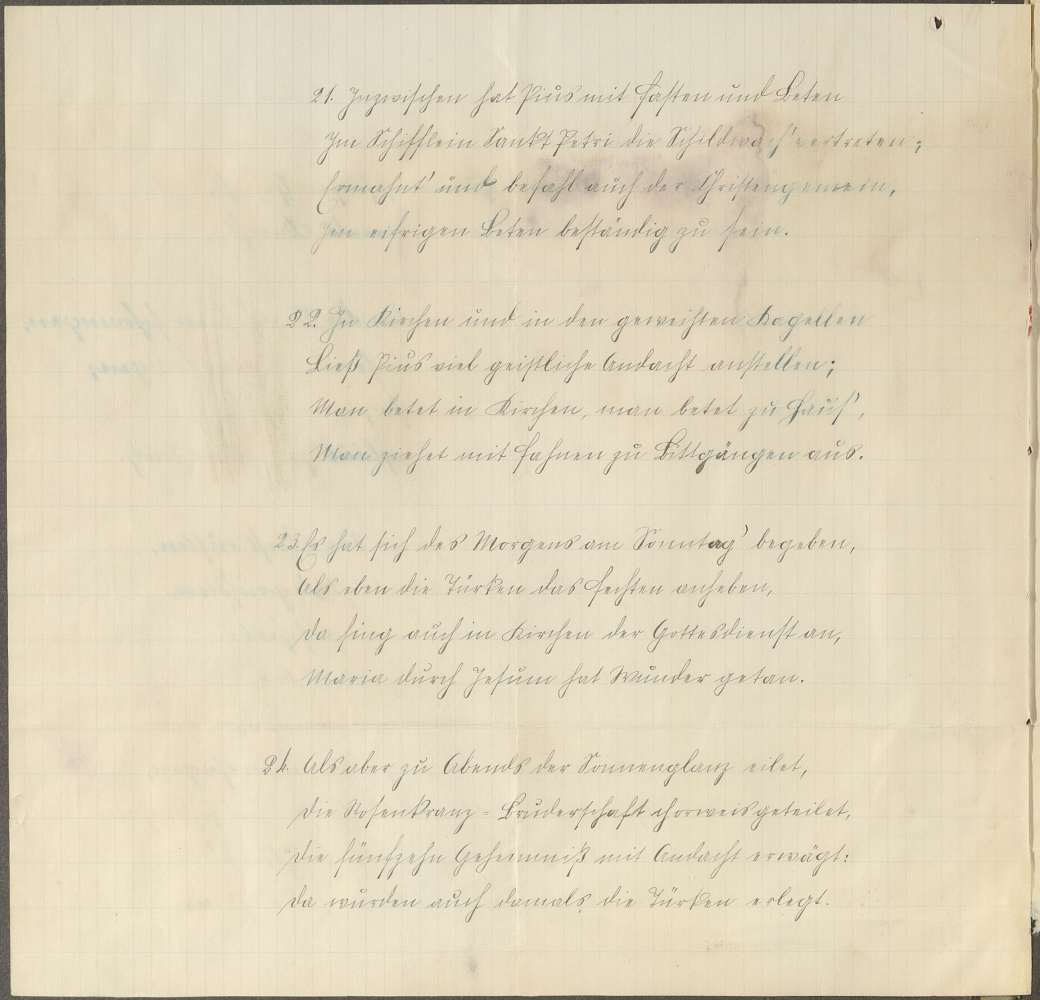 21. Inzwischen hat Pius mit Fasten und Beten
Im Schifflein Sankt Petri die Schildwach' vertreten;
Ermahnt' und befahl auch der Christengemein,
Im eifrigen Beten beständig zu sein.
22. In Kirchen und in den geweihten Kapellen
Ließ Pius viel geistliche Andacht anstellen;
Man betet in Kirchen, man betet zu Haus',
Man ziehet mit Fahnen zu Bittgängen aus.
23. Es hat sich des Morgens am Sonntag' begeben,
Als eben die Türken das Fechten anheben,
Da fing auch in Kirchen der Gottesdienst an,
Maria durch Jesum hat Wunder getan.
24. Als aber zu Abends der Sonnenglanz eilet,
Die Rosenkranz-Bruderschaft chorweis geteilet,
Die fünfzehn Geheimniß mit Andacht erwägt:
Da wurden auch damals die Türken erlegt.